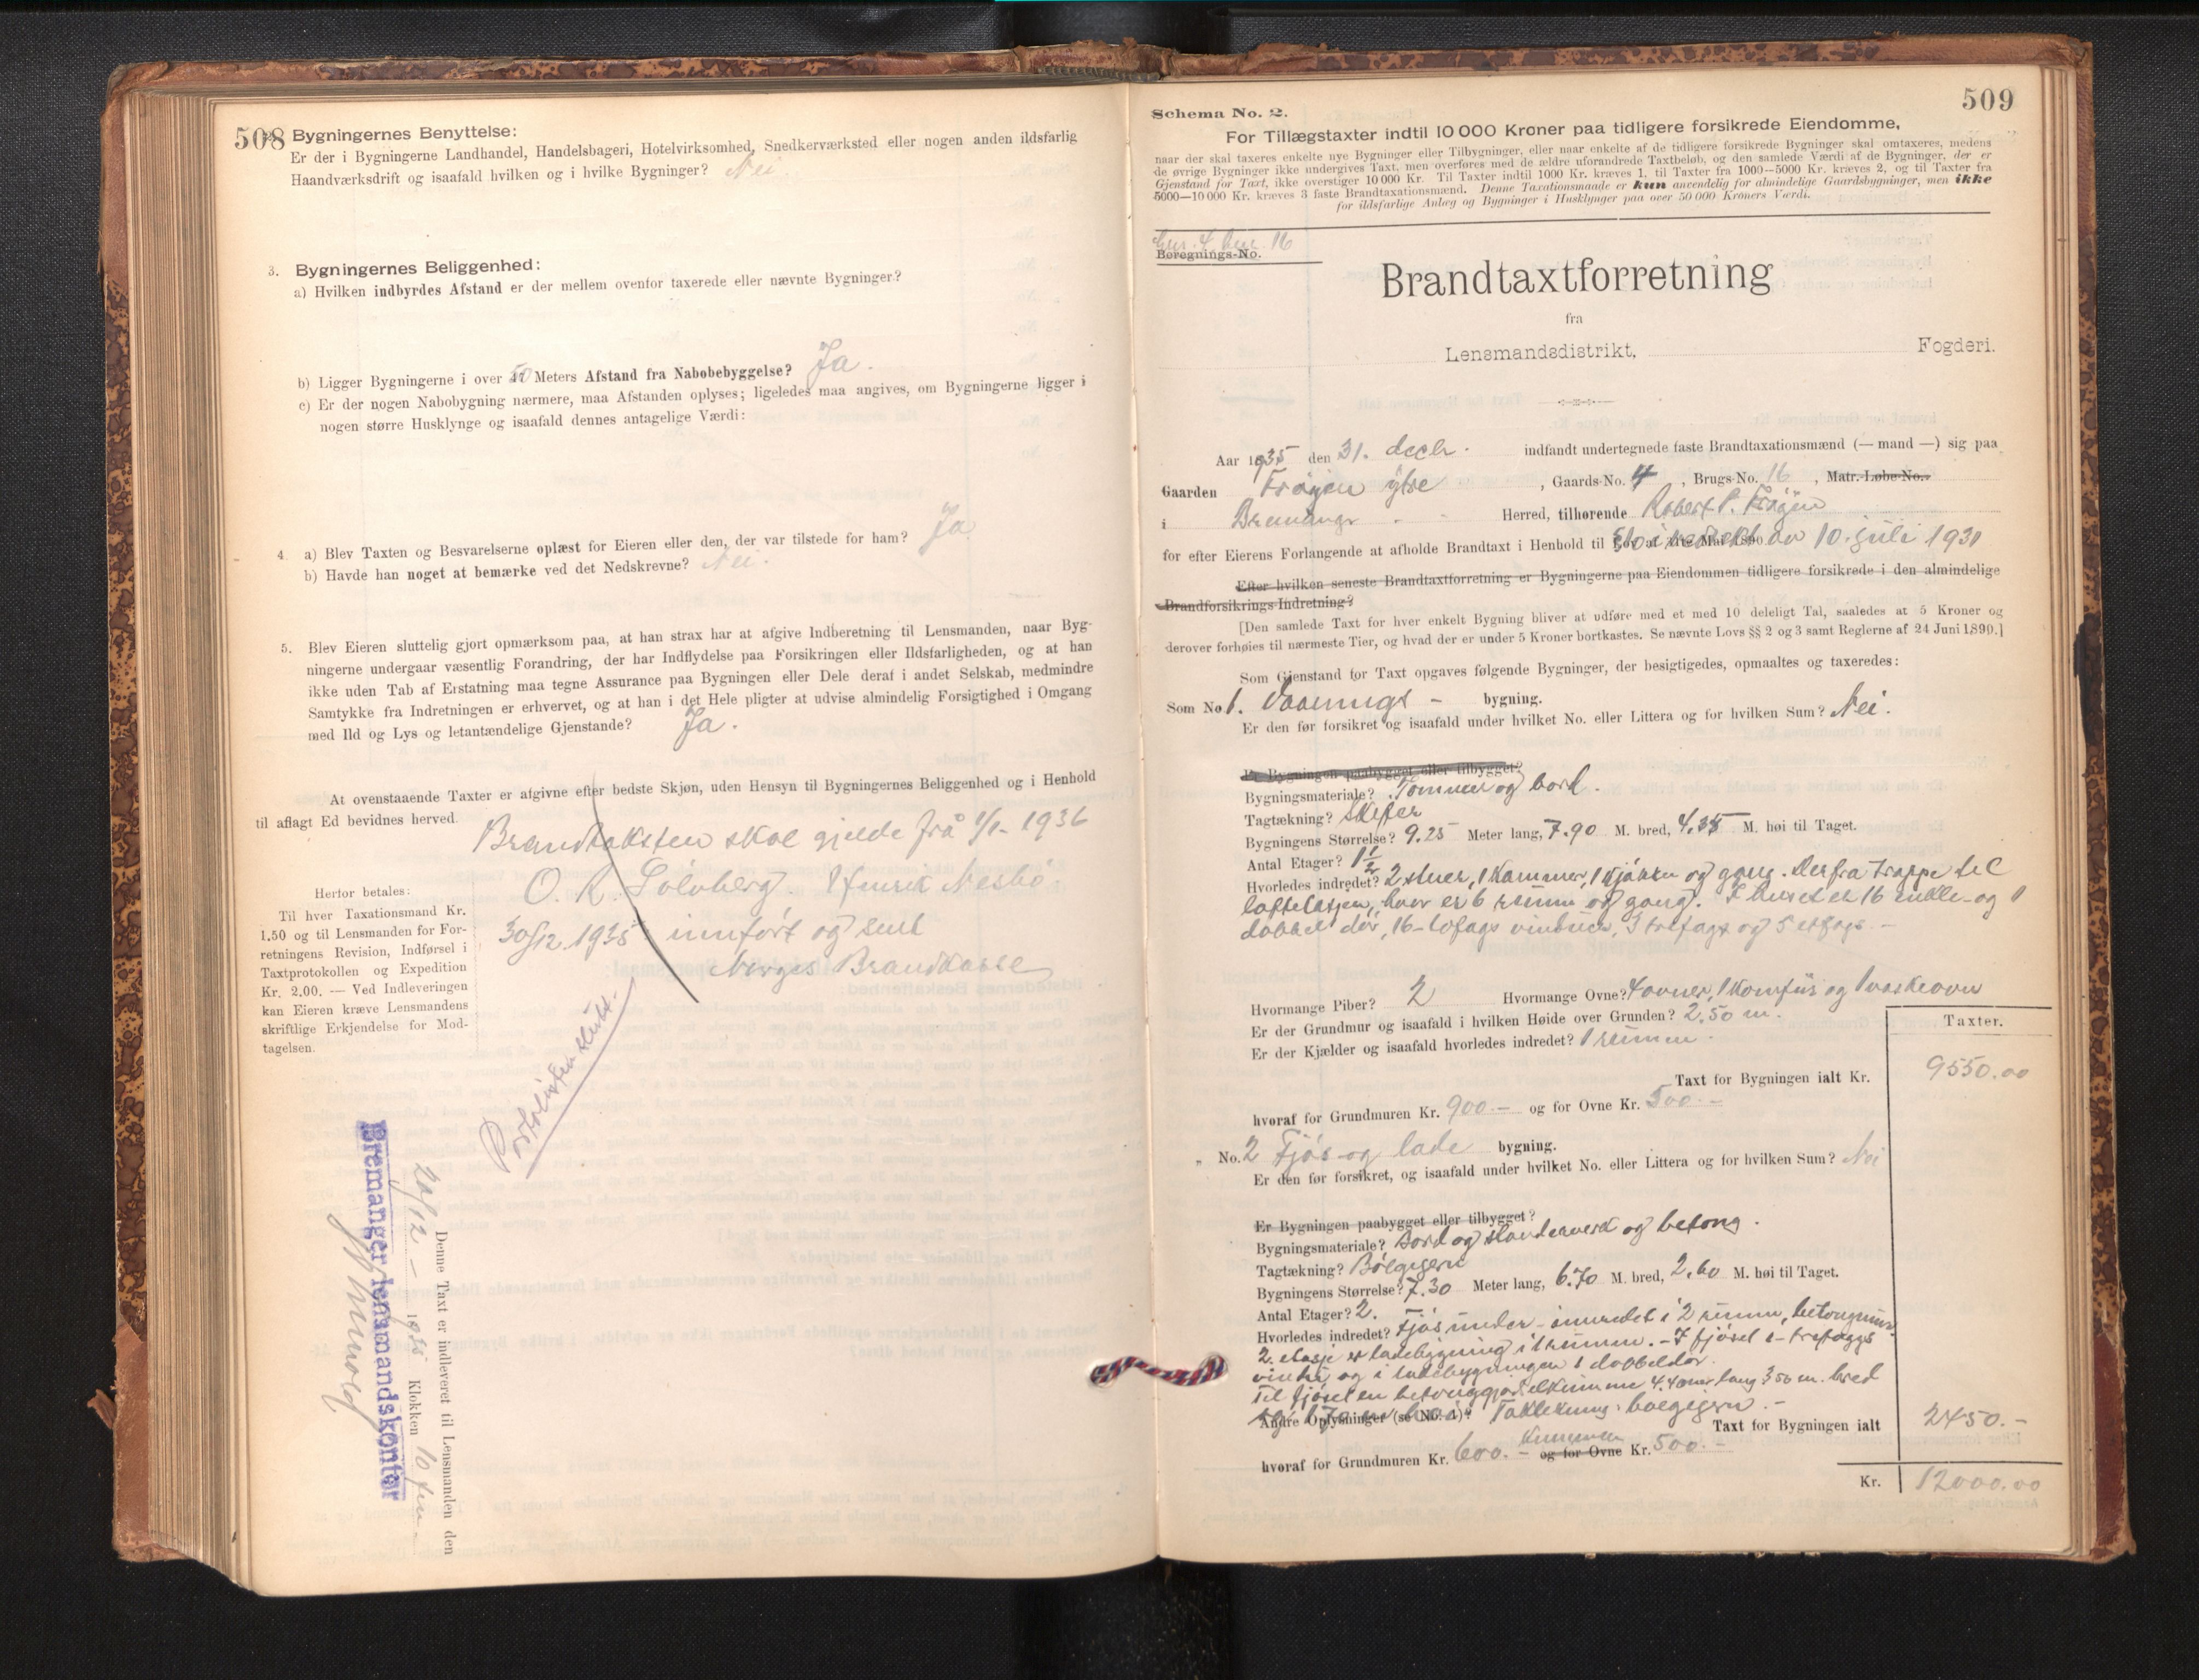 508
Bygningernes Benyttelse:
Er der i Bygningerne Landhandel, Handelsbageri, Hotelvirksomhed, Snedkerværksted eller nogen anden ildsfarlig
Haandværksdrift og isaafald hvilken og i hvilke Bygninger? Nei.
3. Bygningernes Beliggenhed:
a) Hvilken indbyrdes Afstand er der mellem ovenfor taxerede eller nævnte Bygninger?
b) Ligger Bygningerne i over 50 Meters Afstand fra Nabobebyggelse? Ja.
c) Er der nogen Nabobygning nærmere, maa Afstanden oplyses; ligeledes maa angives, om Bygningerne ligger i
nogen større Husklynge og isaafald dennes antagelige Værdi:
4. a) Blev Taxten og Besvarelserne oplæst for Eieren eller den, der var tilstede for ham? Ja
b) Havde han noget at bemærke ved det Nedskrevne? Nei.
5. Blev Eieren sluttelig gjort opmærksom paa, at han strax har at afgive Indberetning til Lensmanden, naar Byg-
ningerne undergaar væsentlig Forandring, der har Indflydelse paa Forsikringen eller Ildsfarligheden, og at han
ikke uden Tab af Erstatning maa tegne Assurance paa Bygningen eller Dele deraf i andet Selskab, medmindre
Samtykke fra Indretningen er erhvervet, og at han i det Hele pligter at udvise almindelig Forsigtighed i Omgang
med Ild og Lys og letantændelige Gjenstande? Ja.
At ovenstaaende Taxter er afgivne efter bedste Skjøn, uden Hensyn til Bygningernes Beliggenhed og i Henhold
til aflagt Ed bevidnes herved.
Brandtaksten skal gjelde frå 1/1- 1936
O. K. Solvberg. Henrik Nesbø.
30/12 1935 innført og sent
Norges Brandkasse
Herfor betales:
Til hver Taxationsmand Kr.
1.50 og til Lensmanden for For-
retningens Revision, Indførsel i
Taxtprotokollen og Expedition
Kr. 2.00. — Ved Indleveringen
kan Eieren kræve Lensmandens
skriftlige Erkjendelse for Mod-
tagelsen.
Portolisten slutt.
Denne Taxt er indleveret til Lensmanden den
20/12 - 1935 Klokken 10 fm
Bremanger lensmandskontor
509
Schema No. 2.
For Tillægstaxter indtil 10 000 Kroner paa tidligere forsikrede Eiendomme,
naar der skal taxeres enkelte nye Bygninger eller Tilbygninger, eller naar enkelte af de tidligere forsikrede Bygninger skal omtaxeres, medens
de øvrige Bygninger ikke undergives Taxt, men overføres med de ældre uforandrede Taxtbeløb, og den samlede Værdi af de Bygninger, der er
Gjenstand for Taxt, ikke overstiger 10 000 Kr. Til Taxter indtil 1000 Kr. kræves 1, til Taxter fra 1000—5000 Kr. kræves 2, og til Taxter fra
5000—10 000 Kr. kræves 3 faste Brandtaxationsmænd. Denne Taxationsmaade er kun anvendelig for almindelige Gaardsbygninger, men ikke
for ildsfarlige Anlæg og Bygninger i Husklynger paa over 50 000 Kroners Værdi.
16
Beregnings-No.
Brandtaxtforretning
fra
Lensmandsdistrikt, Fogderi.
Aar 1935 den 31. decbr. indfandt undertegnede faste Brandtaxationsmænd (— mand —) sig paa
Gaarden Frøyen ytre, Gaards-No. 4, Brugs-No. 16, Matr.-Løbe-No.
i Bremanger Herred, tilhørende Robert P. Frøyen
for efter Eierens Forlangende at afholde Brandtaxt i Henhold til Lov av 10. juli 1930
Efter hvilken seneste Brandtaxtforretning er Bygningerne paa Eiendommen tidligere forsikrede i den almindelige
Brandforsikrings-Indretning?
[Den samlede Taxt for hver enkelt Bygning bliver at udføre med et med 10 deleligt Tal, saaledes at 5 Kroner og
derover forhøies til nærmeste Tier, og hvad der er under 5 Kroner bortkastes. Se nævnte Lovs §§ 2 og 3 samt Reglerne af 24 Juni 1890.]
Som Gjenstand for Taxt opgaves følgende Bygninger, der besigtigedes, opmaaltes og taxeredes:
Som No 1. Vaanings - bygning.
Er den før forsikret og isaafald under hvilket No. eller Littera og for hvilken Sum? Nei.
Er Bygningen paabygget eller tilbygget?
Bygningsmateriale? Tømmer og bord.
Tagtækning? Skifer
Bygningens Størrelse? 9.25 Meter lang, 7.90 M. bred, 4.35 M. høi til Taget.
Antal Etager? 1 1/2
Hvorledes indredet? 2 stuer, 1 kammer, 1 kjøkken og gang. Derfra trappe til
loftetasjen, hvor er 6 rumm og gang. I huset er 16 enkle- og 1
dobbel dør, 16-tofags vinduer, 3 trefags og 5 etfags. -
Hvormange Piber? 2 Hvormange Ovne? 4 ovner, 1 komfür og 1 vaskeovn
Er der Grundmur og isaafald i hvilken Høide over Grunden? 2.50 m.
Er der Kjælder og isaafald hvorledes indredet? 1 rumm.
Taxter.
Taxt for Bygningen ialt Kr. 9550.00
hvoraf for Grundmuren Kr. 900.- og for Ovne Kr. 500.-
" No. 2 Fjøs- og lade bygning.
Er den før forsikret, og isaafald under hvilket No. eller Littera og for hvilken Sum? Nei
Er Bygningen paabygget eller tilbygget?
Bygningsmateriale? Bord og standeaverk og betong.
Tagtækning? Bølgejern
Bygningens Størrelse? 7.30 Meter lang, 6.70 M. bred, 2.60 M. høi til Taget.
Antal Etager? 2.
Hvorledes indredet? Fjøs under - innredet i 2 rumm, betongmur
2. etasje er ladebygning i 1 rumm. - I fjøset 2- trefaggs
vindu og i ladebygningen 1 dobbeldør.
Til fjøset en betonggjødselkumme 4.40 m lang 3.50 m. bred
Andre Oplysninger (se No. 1)? Taktekking: bølgejern. -
Taxt for Bygningen ialt 2450.-
hvoraf for Grundmuren Kr. 600.- kummen og for Ovne Kr. 500.-
Kr. 12000.00